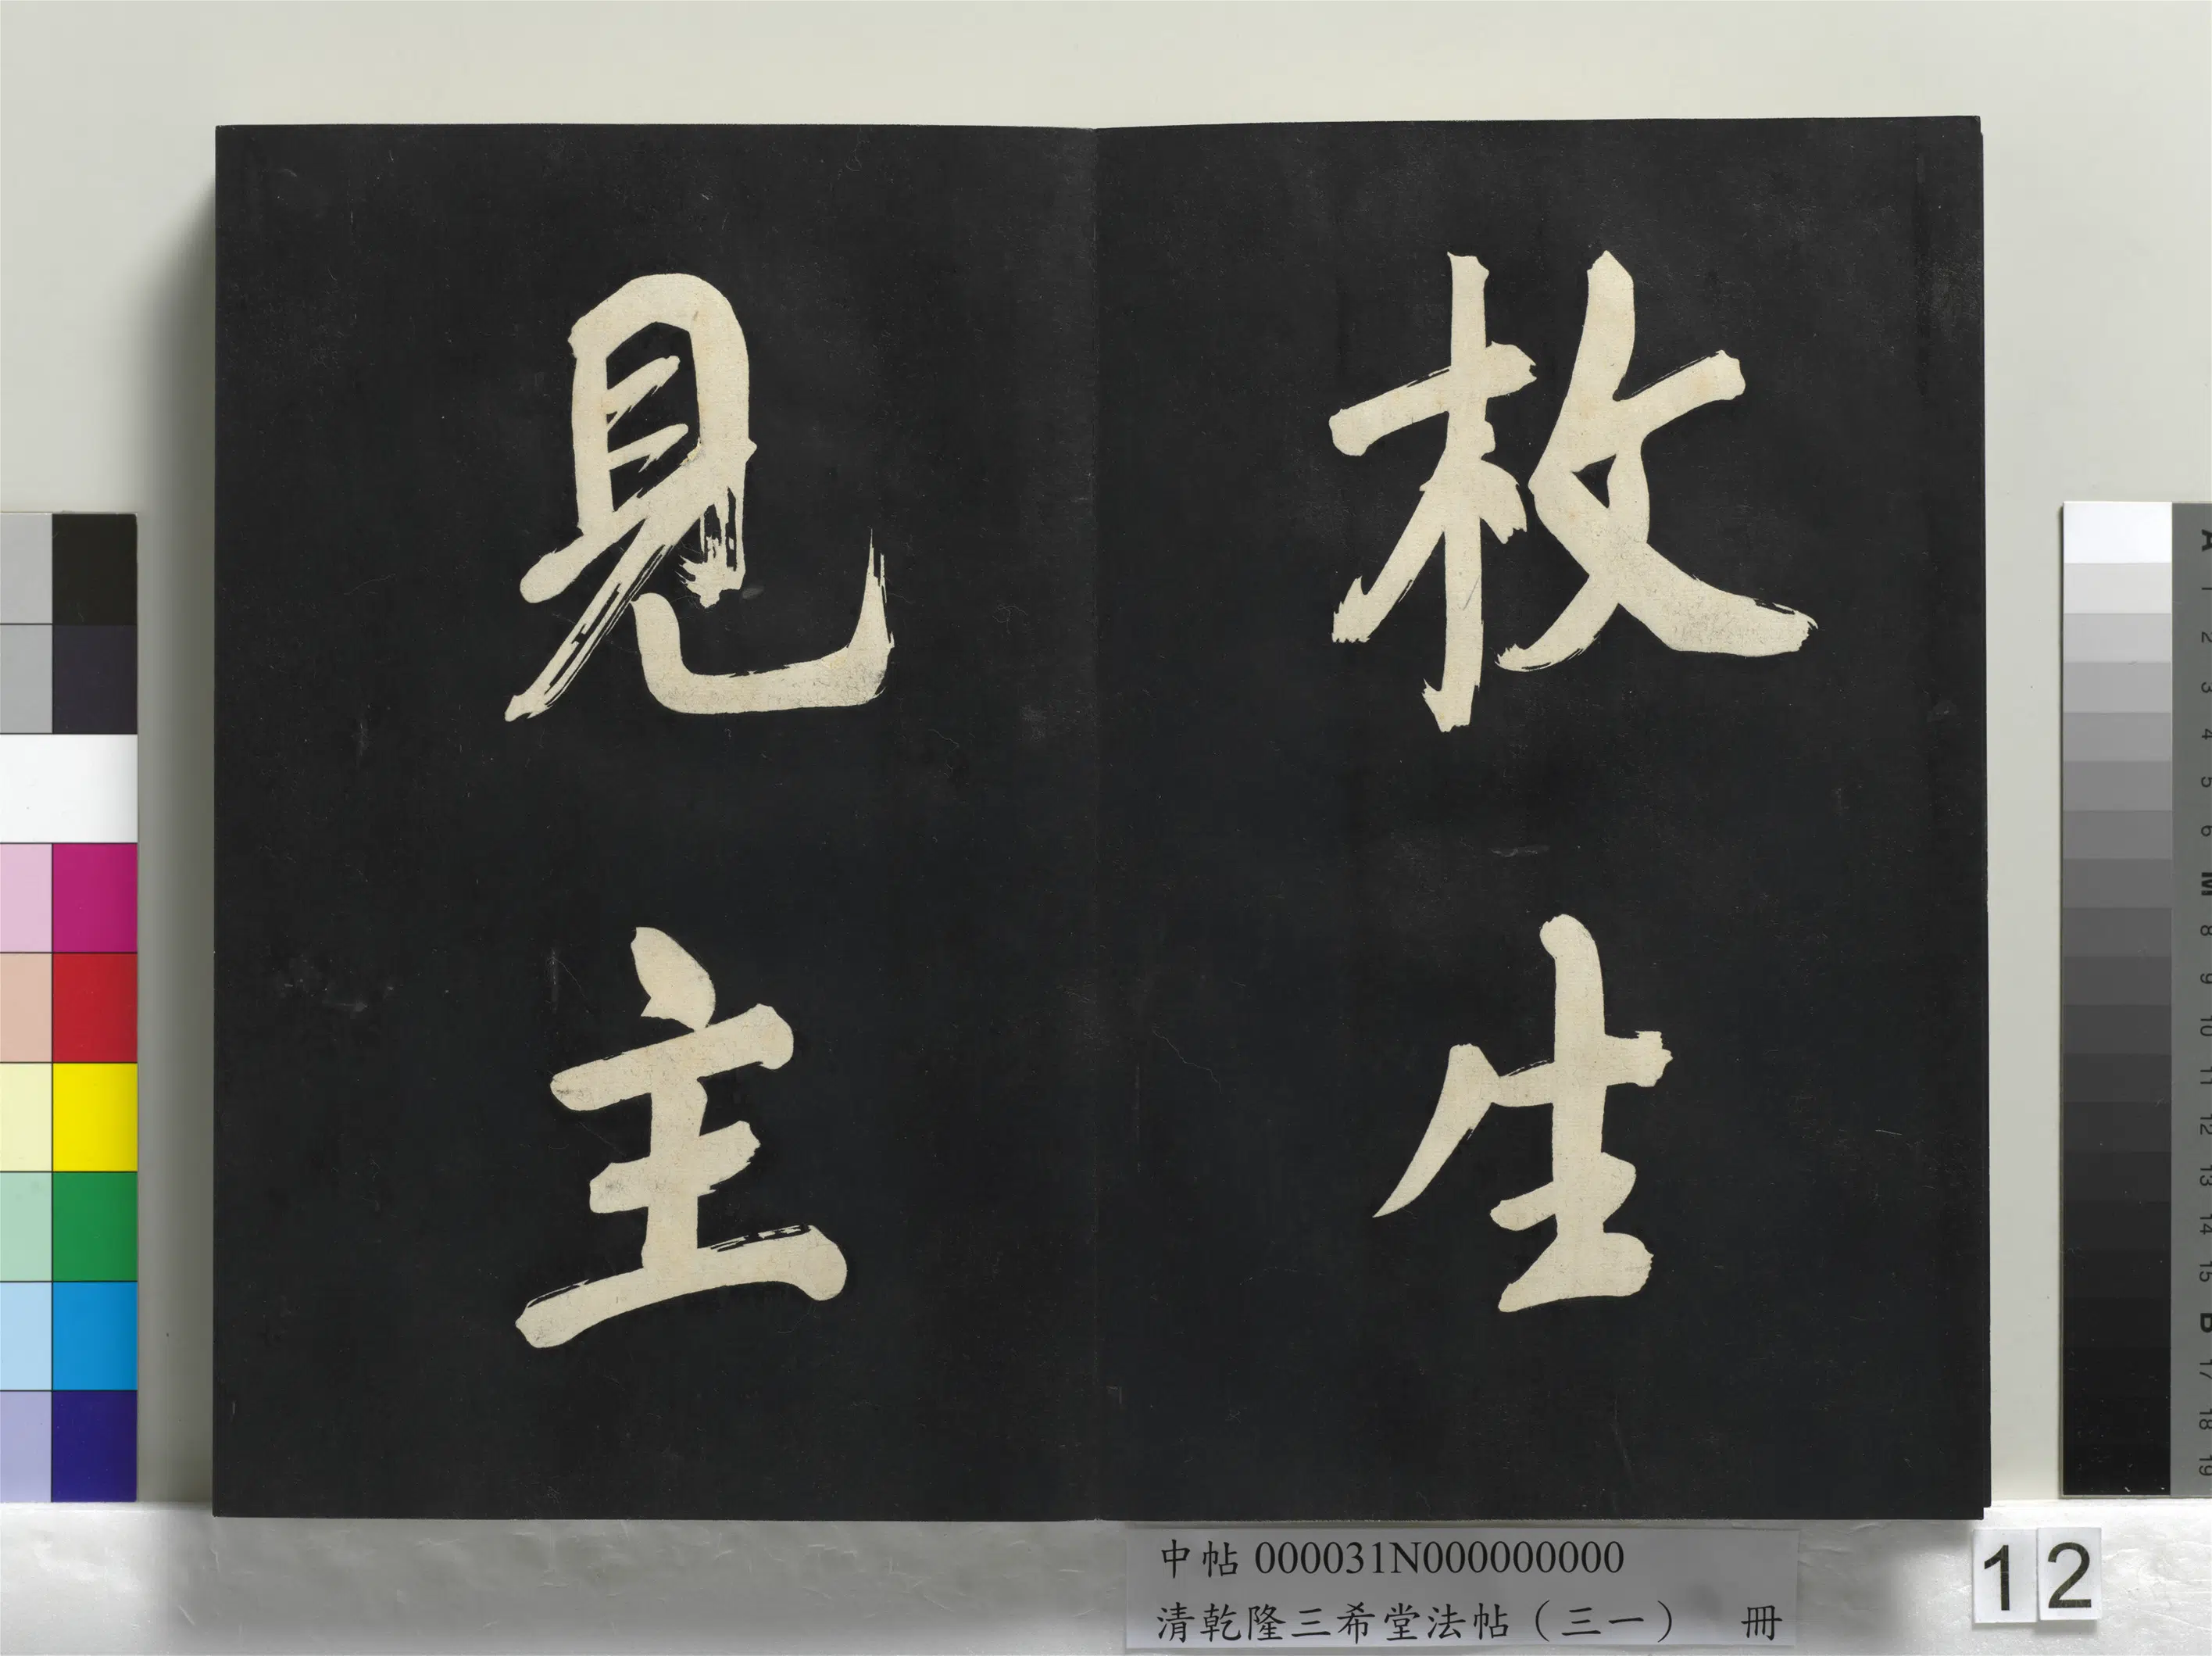 枚生
見主
中帖000031N000000000
清乾隆三希堂法帖（三一） 冊
12
A
1
2
3
4
5
6
M
8
9
10
11
12
13
14
15
B
17
18
19